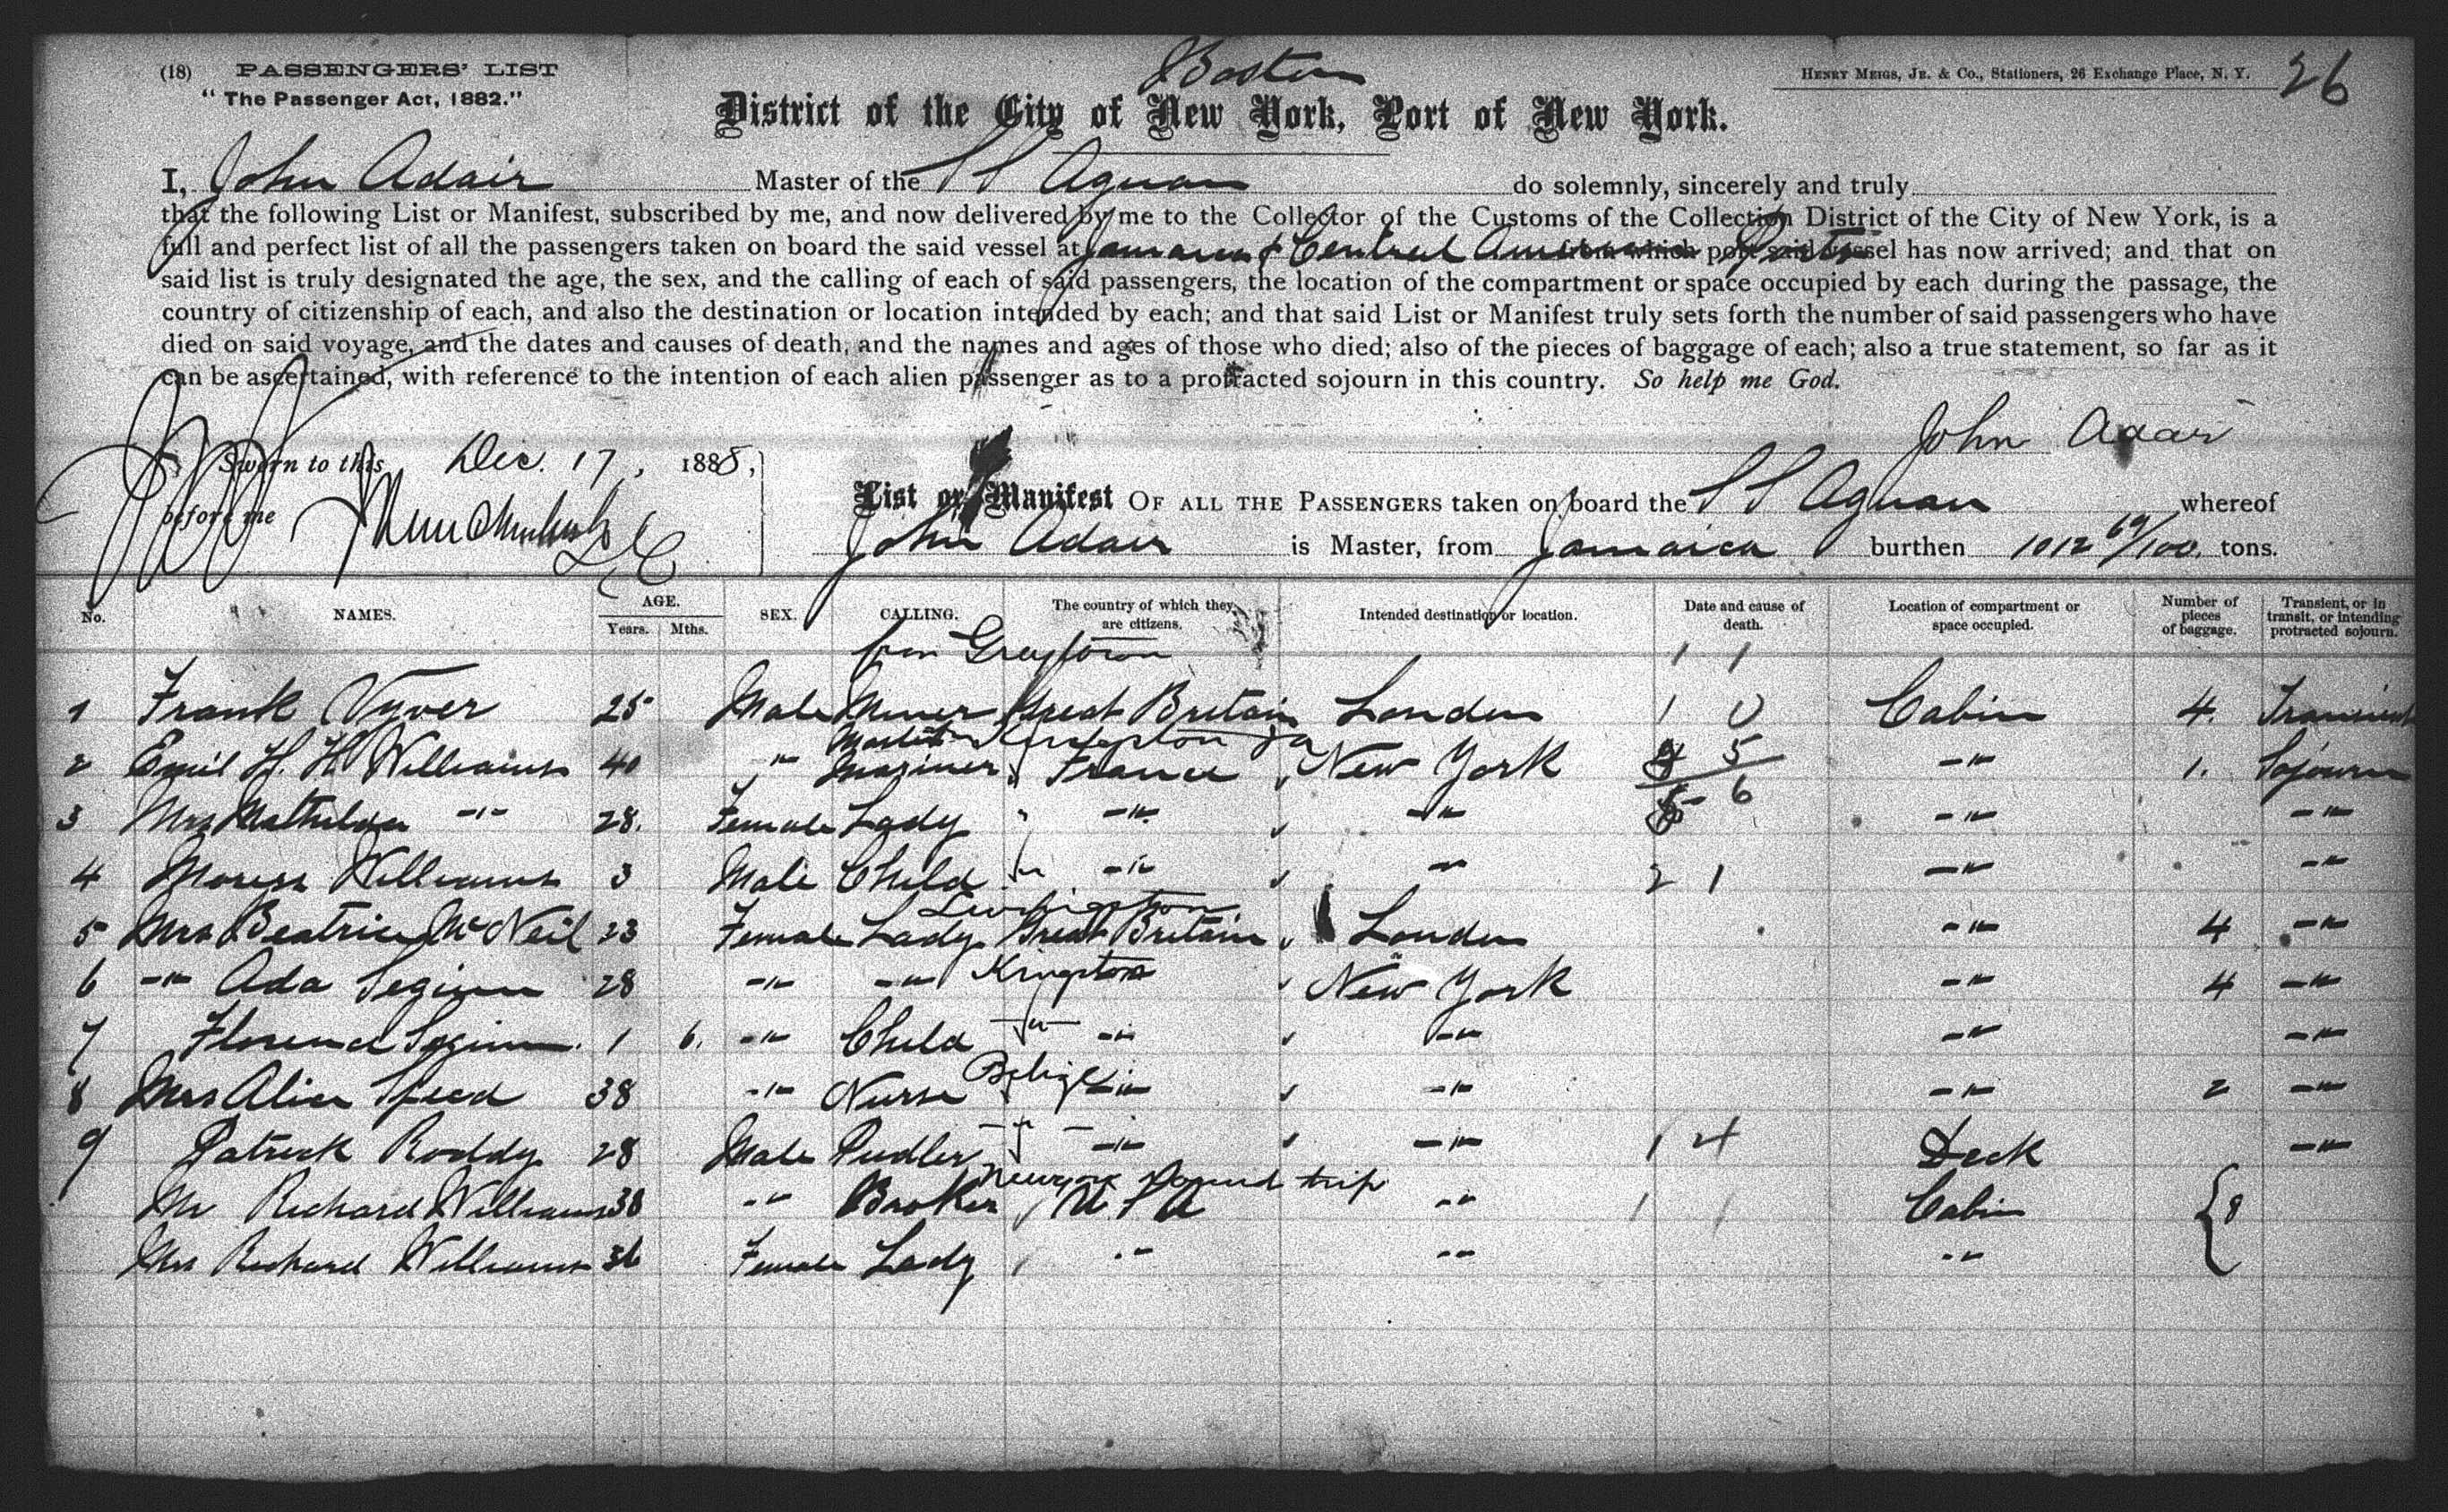 Boston
26
(18) PASSENGERS' LIST
HENRY MEIGS, JR. & CO., Stationers, 26 Exchange Place, N. Y.
"The Passenger Act, 1882."
District of the City of New York, Port of New York.
I, John Adair Master of the SS Aguan do solemnly, sincerely and truly
that the following List or Manifest, subscribed by me, and now delivered by me to the Collector of the Customs of the Collection District of the City of New York, is a
full and perfect list of all the passengers taken on board the said vessel at Jamaica & Central American Ports from which port said vessel has now arrived; and that on
said list is truly designated the age, the sex, and the calling of each of said passengers, the location of the compartment or space occupied by each during the passage, the
country of citizenship of each, and also the destination or location intended by each; and that said List or Manifest truly sets forth the number of said passengers who have
died on said voyage, and the dates and causes of death, and the names and ages of those who died; also of the pieces of baggage of each; also a true statement, so far as it
can be ascertained, with reference to the intention of each alien passenger as to a protracted sojourn in this country. So help me God.
John Adair
Sworn to this Dec. 17, 1888,
before me
List or Manifest OF ALL THE PASSENGERS taken on board the SS Aguan whereof
John Adair is Master, from Jamaica burthen 1012 69/100 tons.
No. NAMES. AGE. Years. Mths. SEX. CALLING. The country of which they are citizens. Intended destination or location. Date and cause of death. Location of compartment or space occupied. Number of pieces of baggage. Transient, or in transit, or intending protracted sojourn.
from Greytown 1 1
1 Frank Vyver 25 Male Miner Great Britain London 1 0 Cabin 4. Transient
Kingston Ja
2 Emil H. H. Williams 40 " Mariner France New York 5 -"- 1. Sojourn
6
3 Mrs Mathilda -"- 28. Female Lady -"- -"- -"- -"-
4 Williams 3 Male Child -"- -"- 2 1 -"- -"-
Livingston
5 Mrs Beatrice McNeil 23 Female Lady Great Britain London -"- 4 -"-
Kingston
6 -"- Ada 28 -"- -"- New York -"- 4 -"-
Ja
7 Florence 1 6. -"- Child -"- -"- -"- -"-
Belize
8 Mrs Alice Speed 38 -"- Nurse -"- -"- -"- 2 -"-
9 Patrick Roddy 28 Male Pedler -"- -"- 1 4 Deck -"-
New York Round trip
Mr Richard Williams 38 -"- Broker U S A -"- 1 1 Cabin 8
Mrs Richard Williams 36 Female Lady -"- -"- -"-